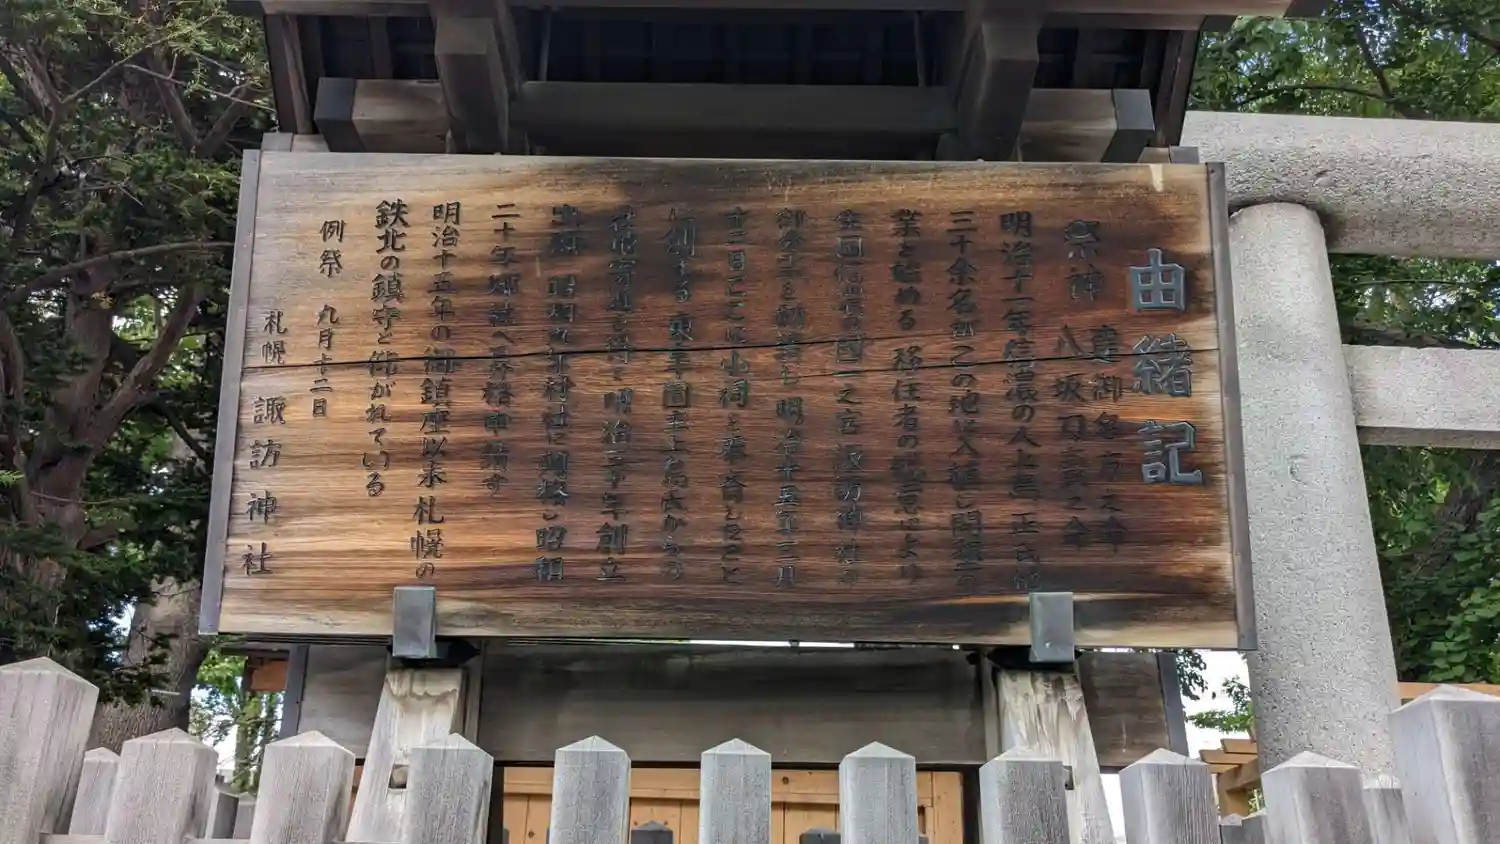 由緒記
祭神 建御名方之命
八坂刀売之命
明治十一年信濃の人上島 正氏他
三十余名がこの地に入植し開拓の
業を始める 移住者の総意により
生国信濃の国一之宮諏訪神社の
御分霊を勧請し明治十五年三月
十二日ここに小祠を
創する 東年園主上島氏からの
を得て明治三十年創立
出願 昭和九年村社に昇格し昭和
二十年郷社へ昇格申請す
明治十五年の御鎮座以来札幌の
鉄北の鎮守と仰がれている
例祭 九月十二日
札幌 諏訪神社